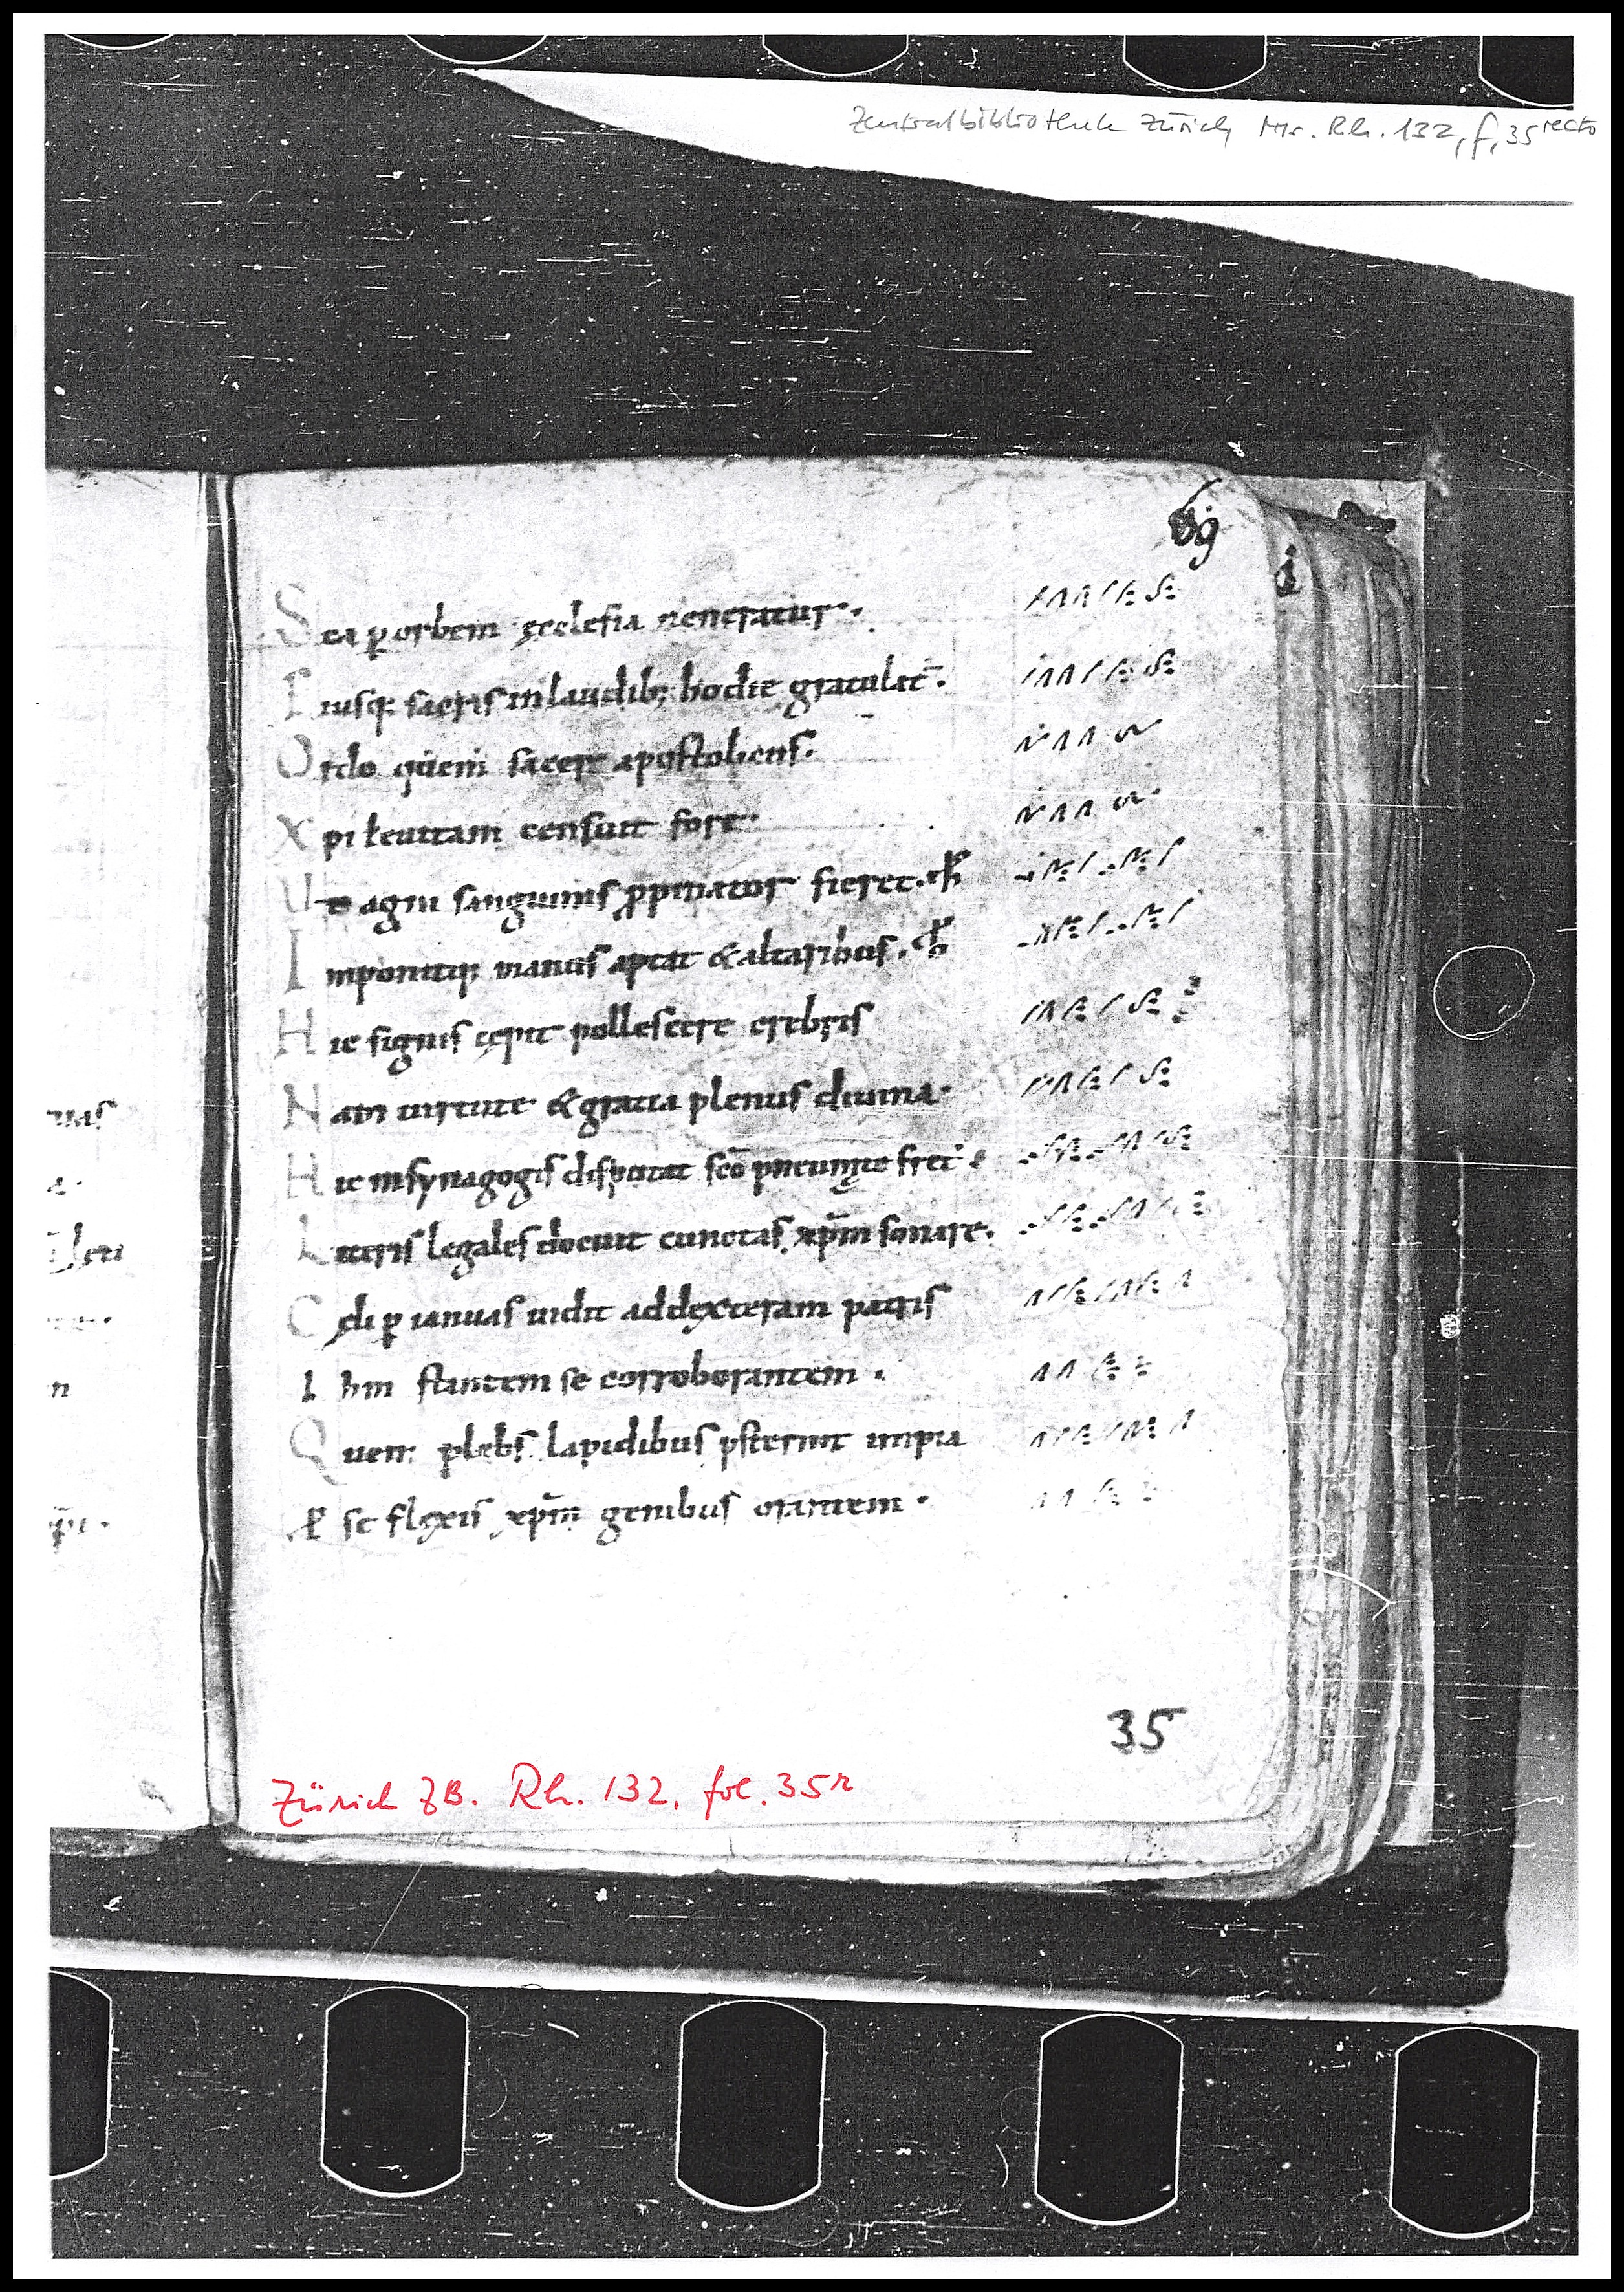 Zentralbibliothek Zürich, Ms. Rh. 132, f. 35 recto
Sca p̲ orbem ęcclesia ueneratur.
Eiusq; sacris inlaudib; hodie gratulat̄.
Ordo quem sacer apostolicus.
Xpi leuitam censuit fore.
Ut agni sanguinis ꝓpinator fieret.
Imponitq; manus aptat & altaribus.
Hic signis cępit pollescere crebris
Nam uirtute & gratia plenus diuina.
Hic insynagogis disputat sc̄o pneumate fret.
Litteris legales docuit cunctas xp̄m sonare.
Cęli p̲ ianuas uidit addexteram patris
Ihm stantem se corroborantem.
Quem plebs lapidibus ꝓsternit impia
se flexis xp̄m genibus orantem.
uas
n
35
Zürich ZB. Rh. 132, fol. 35r